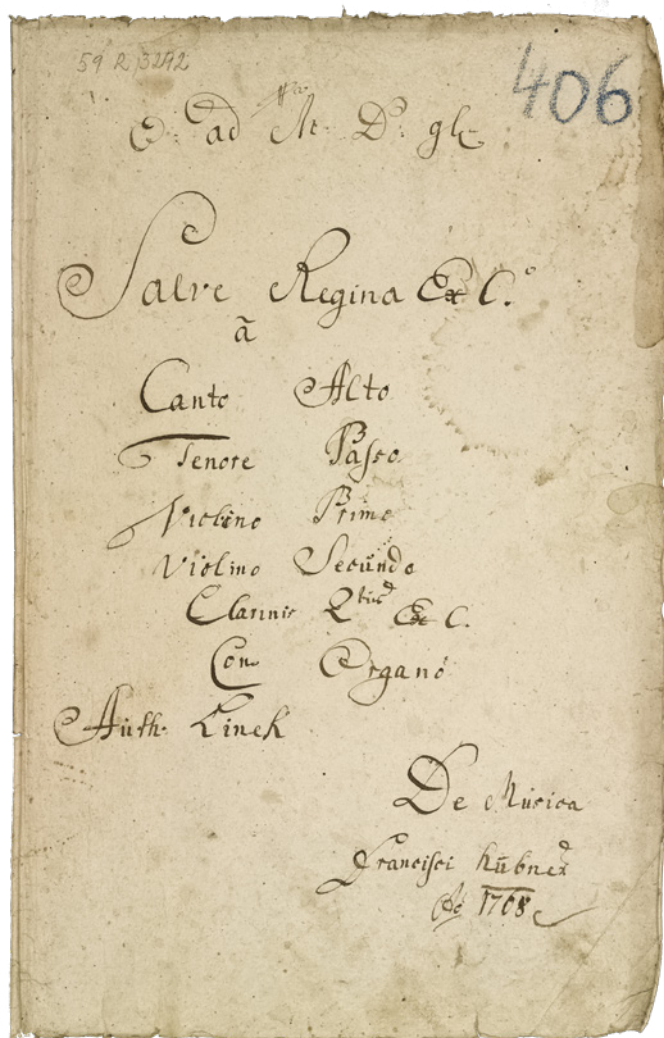 59 R 3292
406
O: ad M: D: gl:
Salve Regina Ex C.
ã
Canto Alto
Tenore Passo
Violino Primo
Violino Secundo
Clarinis Ex C.
Con Organo
Auth. Linek
De Musica
Francisci Hübner
Aõ 1768